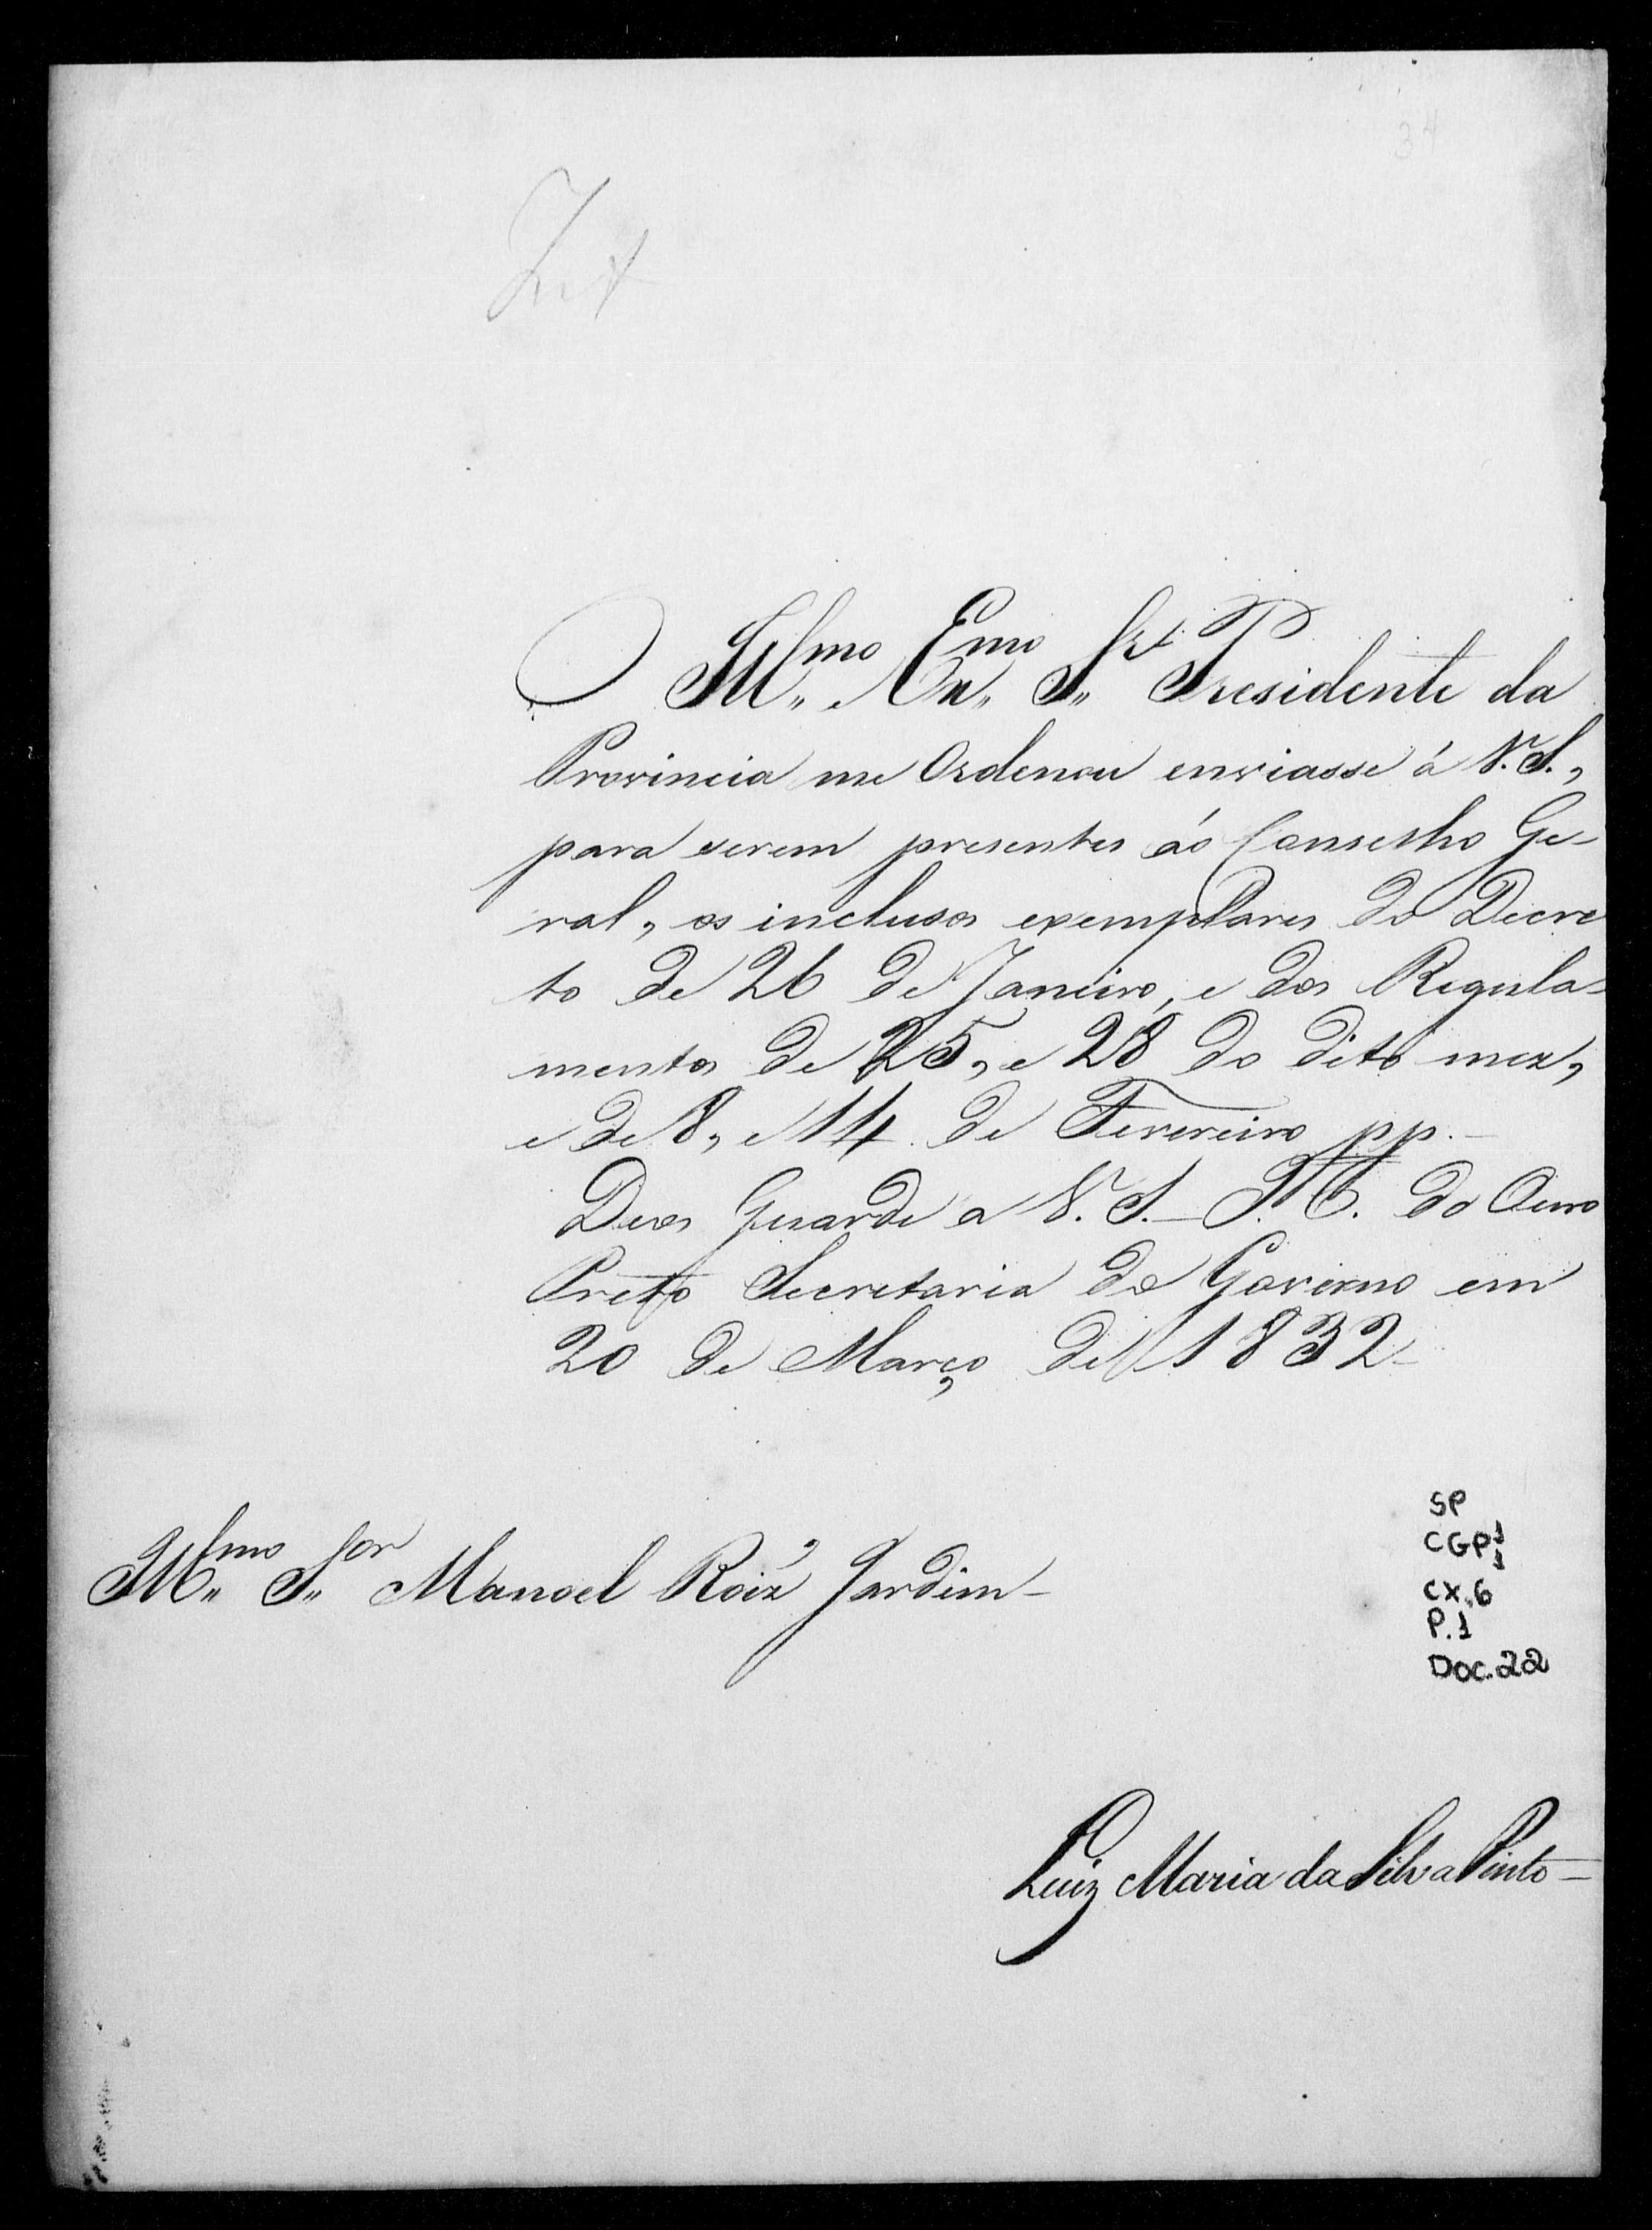 34
O Illmo. e Exmo. Snr. Presidente da
Provincia me Ordenou enviasse á V. S.,
para serem presentes áo Conselho Ge-
ral, os inclusos exemplares do Decre
to de 26 de Janeiro, e dos Regula-
mentos de 25, e 28 do dito mez,
e de 8, e 14 de Fevereiro pp.
Deos Guarde a V. S. - I. C. do Ouro
Preto Secretaria do Governo em
20 de Março de 1832
Illmo. Sor. Manoel Roiz' Jardim -
SP
CGP1
1
CX.6
P.1
DOC.22
Luiz Maria da Silva Pinto -